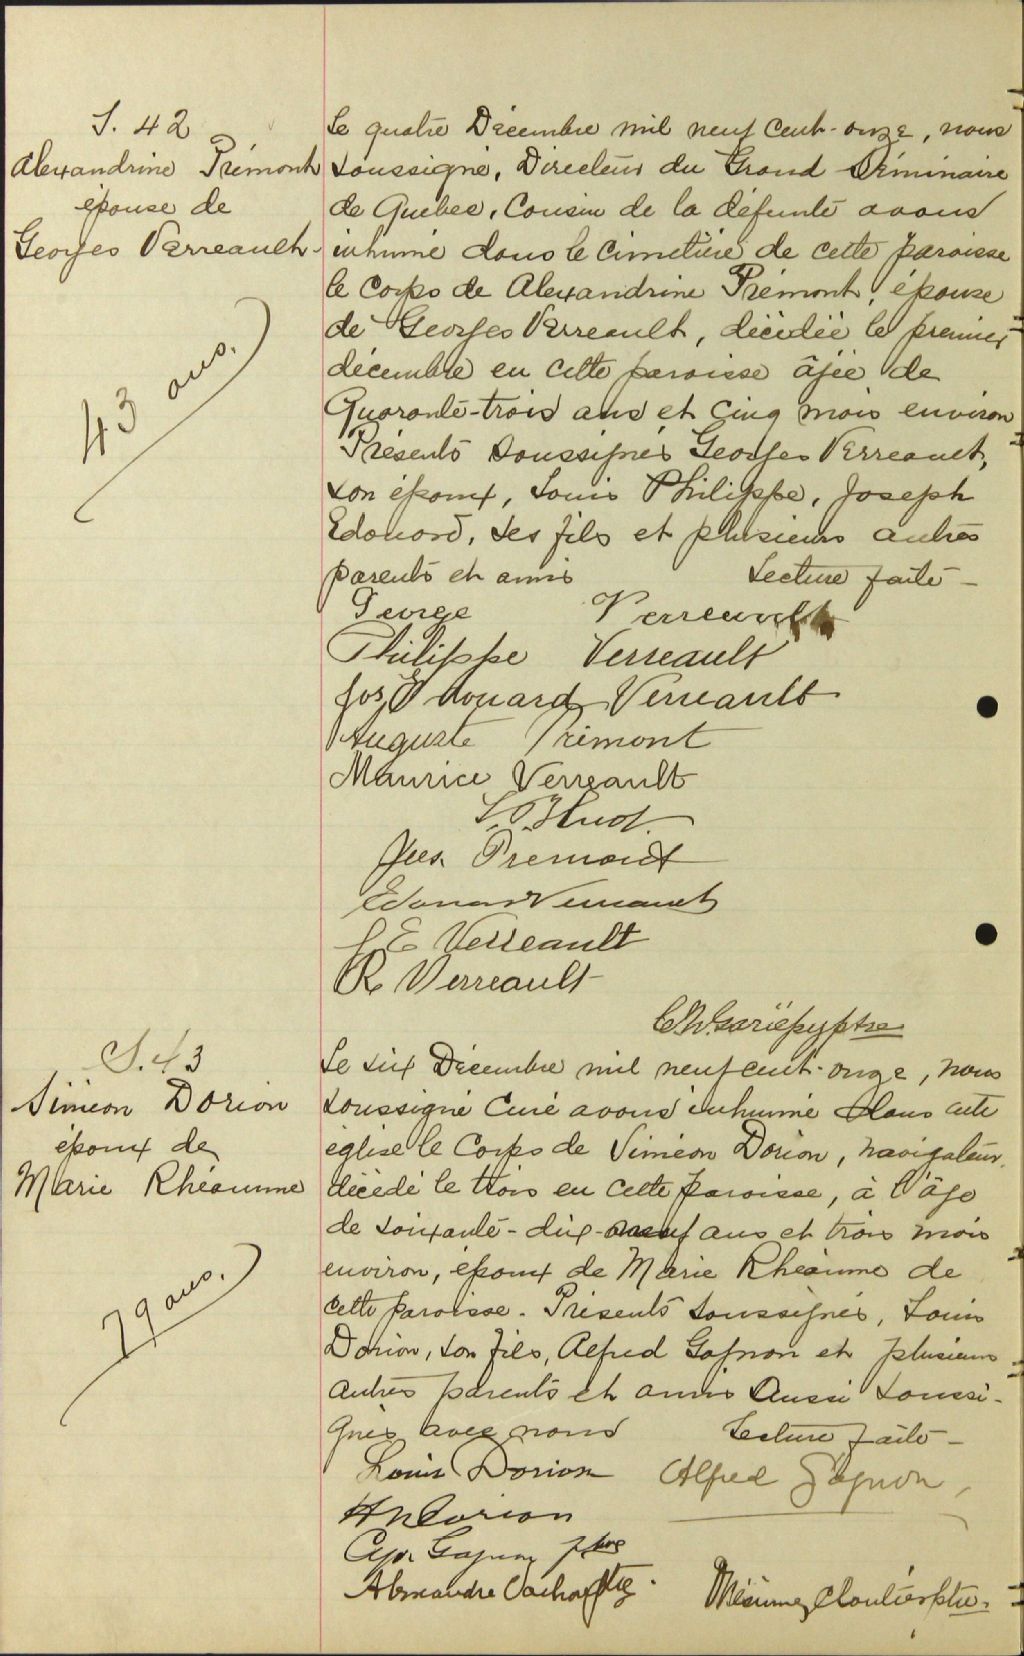 S. 42
Alexandrine Prémont
épouse de
Georges Verreault
43 ans.
Le quatre Décembre mil neuf cent-onze, nous
soussigné, Directeur du Grand Séminaire
de Québec, Cousin de la défunte avons
inhumé dans le cimetière de cette paroisse
le corps de Alexandrine Prémont, épouse
de Georges Verreault, décédée le premier
décembre en cette paroisse âgée de
Quarante-trois ans et cinq mois environ
Présents soussignés Georges Verreault,
son époux, Louis Philippe, Joseph
Edouard, ses fils et plusieurs autres
parents et amis Lecture faite -
George Verreault
Philippe Verreault
Jos Edouard Verreault
Auguste Prémont
Maurice Verreault
Huot
Jules Prémont
Edouard Verreault
J E Verreault
R Verreault
C. N. Gariépy ptre
S. 43
Siméon Dorion
époux de
Marie Rhéaume
79 ans.
Le six Décembre mil neuf cent-onze, nous
soussigné Curé avons inhumé dans cette
église le Corps de Siméon Dorion, navigateur,
décédé le trois en cette paroisse, à l'âge
de soixante-dix-neuf ans et trois mois
environ, époux de Marie Rhéaume de
cette paroisse. Présents soussignés, Louis
Dorion, son fils, Alfred Gagnon et plusieurs
autres parents et amis Aussi soussi-
gnés avec nous Lecture faite -
Louis Dorion Alfred Gagnon,
H N Dorion
Cyp. Gagnon ptre
Alexandre Vachon ptre. Cloutier ptre.